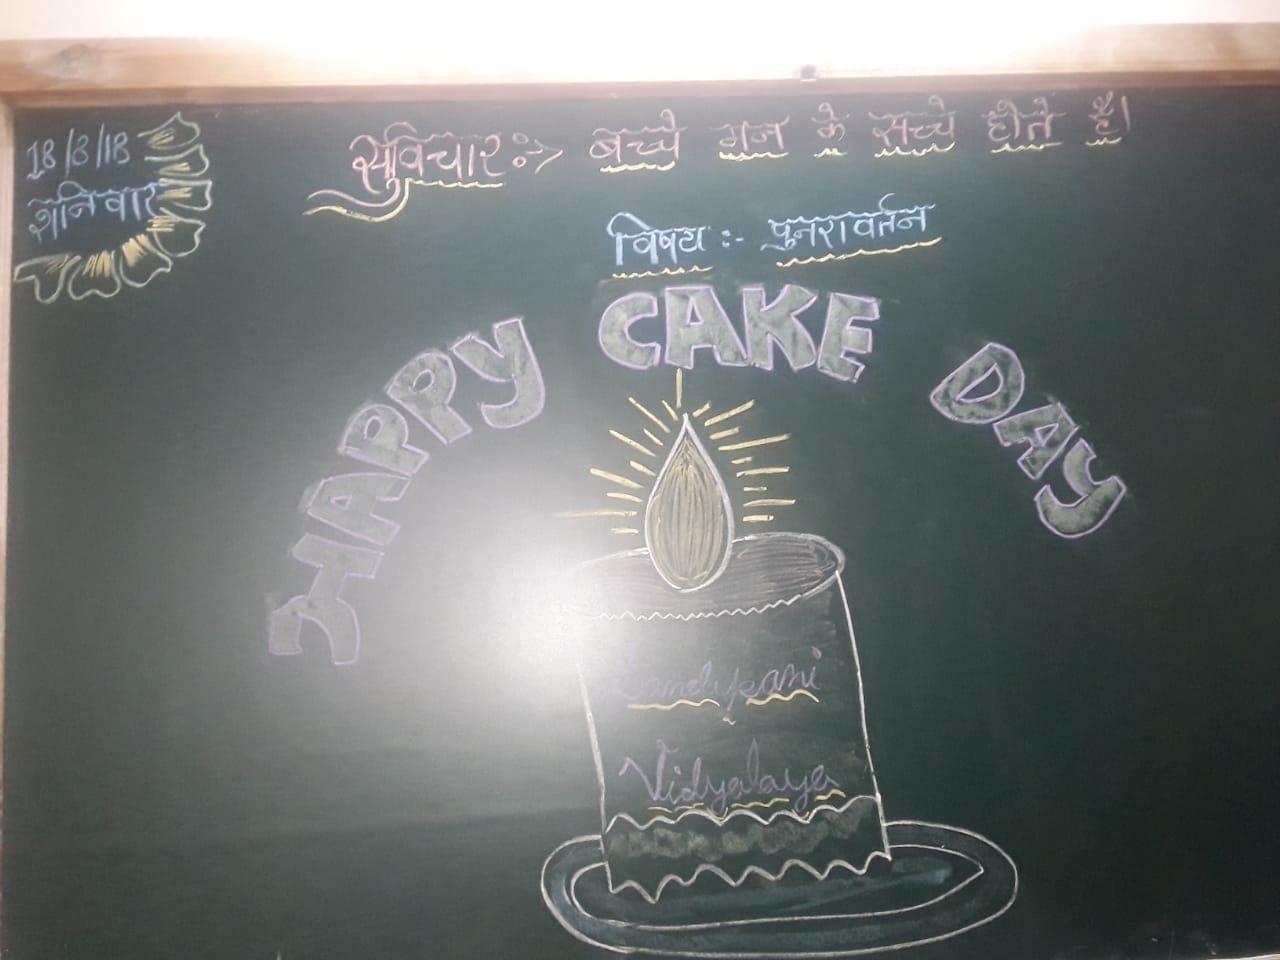 18/8/18
शनिवार
सुविचार :-> बच्चे मन के सच्चे होते हैं।
विषय :- पुनरावर्तन
HAPPY CAKE DAY
Sandipani
Vidyalaya